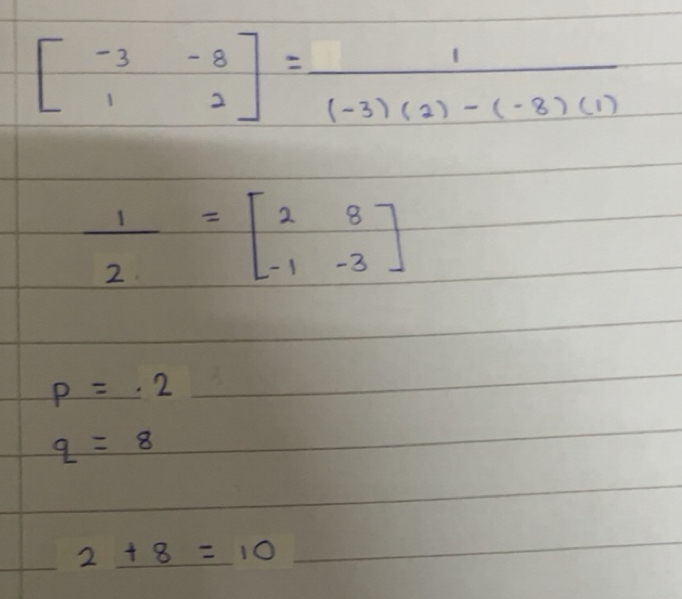 [ -3 -8 ] = 1
[ 1 2 ] (-3)(2) - (-8)(1)
1 = [ 2 8 ]
2 [ -1 -3 ]
p = . 2
q = 8
2 + 8 = 10